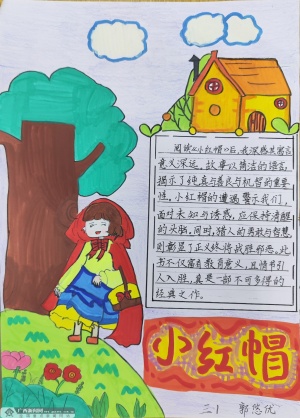 阅读《小红帽》后，我深感其寓言
意义深远。故事以简洁的语言，
揭示了纯真与善良与机智的重要
性。小红帽的遭遇警示我们，
面对未知与诱惑，应保持清醒
的头脑。同时，猎人的勇敢与智慧
则彰显了正义终将战胜邪恶。此
书不仅富有教育意义，且情节引
人入胜，真是一部不可多得的
经典之作。
小红帽
三1 郭悠优